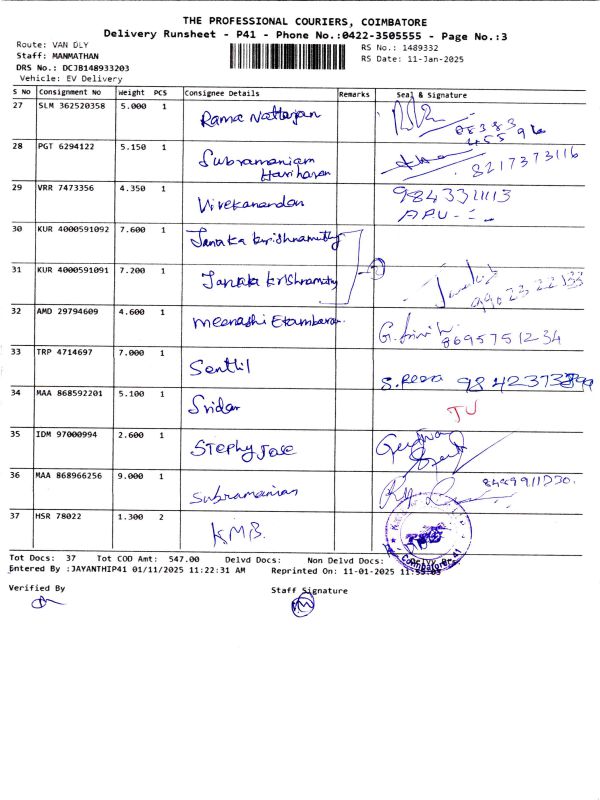 THE PROFESSIONAL COURIERS, COIMBATORE
Delivery Runsheet - P41 - Phone No.:0422-3505555 - Page No.:3
Route: VAN DLY
Staff: MANMATHAN
DRS No.: DCJB148933203
Vehicle: EV Delivery
RS No.: 1489332
RS Date: 11-Jan-2025
S No Consignment No Weight PCS Consignee Details Remarks Seal & Signature
27 SLM 362520358 5.000 1 Rama Nattarjan
28 PGT 6294122 5.150 1 Subramaniam Hariharan 8217373116
29 VRR 7473356 4.350 1 Virekanandan
30 KUR 4000591092 7.600 1 Janaka krishnamuthy
31 KUR 4000591091 7.200 1 Janaka krishnamuthy
32 AMD 29794609 4.600 1 8695751234
33 TRP 4714697 7.000 1 Senthil
34 MAA 868592201 5.100 1 Sridar
35 IDM 97000994 2.600 1 Stephy Jose
36 MAA 868966256 9.000 1 Subramanian
37 HSR 78022 1.300 2 KMB.
Tot Docs: 37 Tot COD Amt: 547.00 Delvd Docs: Non Delvd Docs:
Entered By :JAYANTHIP41 01/11/2025 11:22:31 AM Reprinted On: 11-01-2025
Verified By
Staff Signature